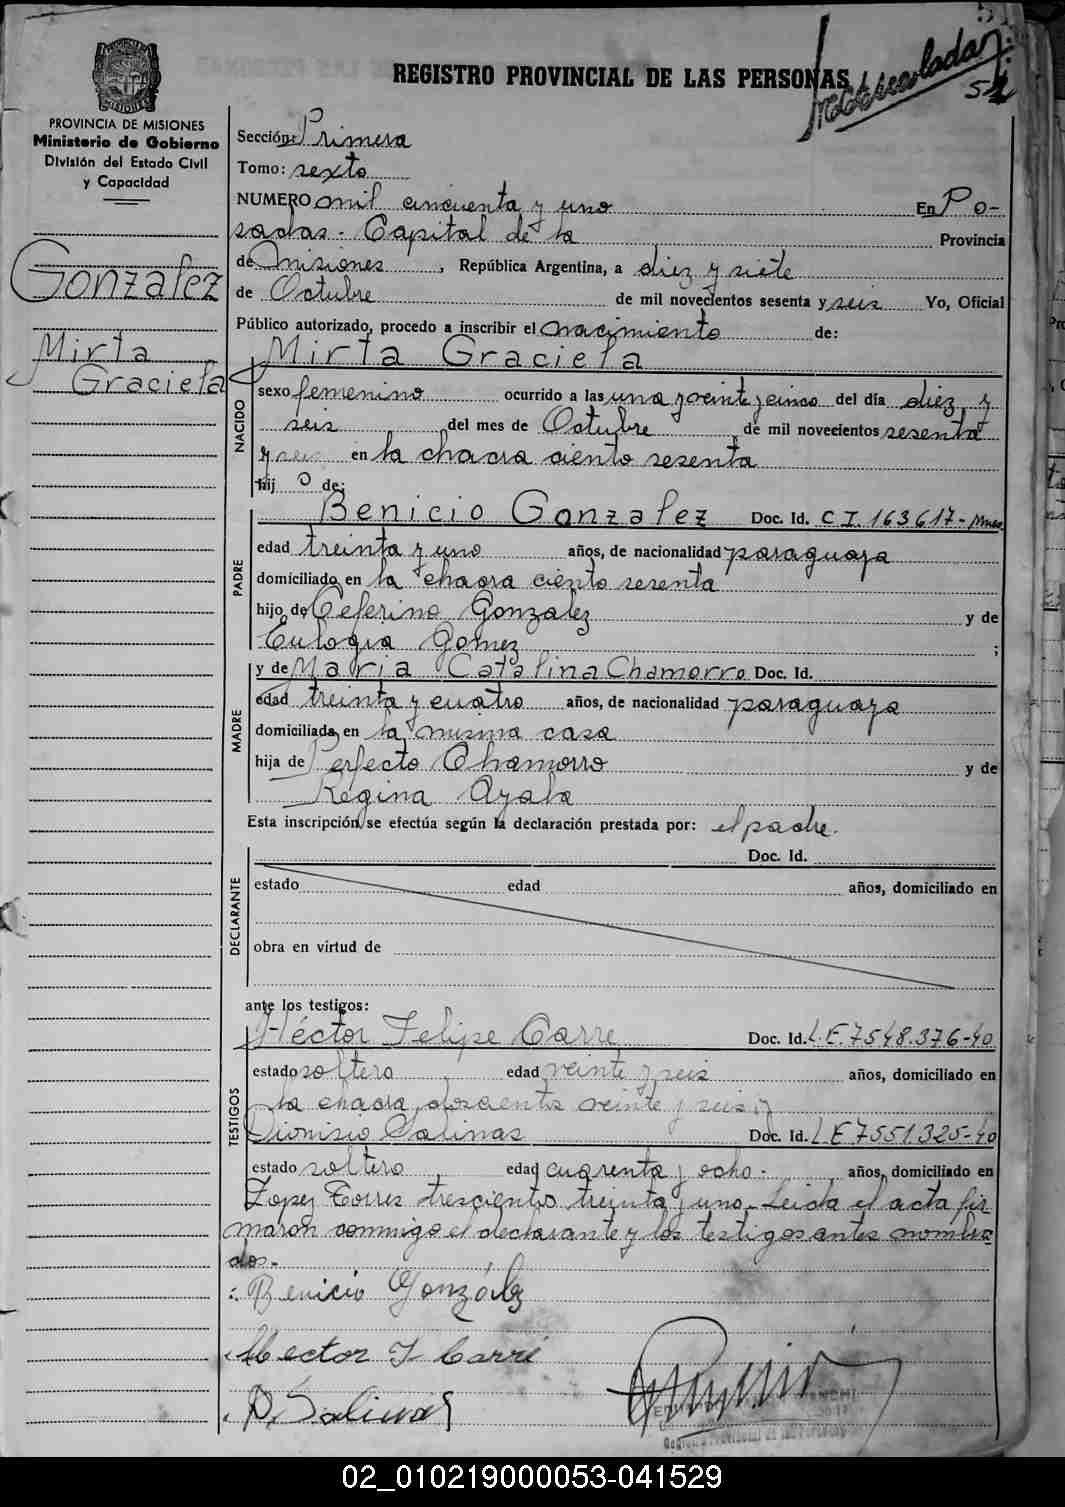 REGISTRO PROVINCIAL DE LAS PERSONAS
PROVINCIA DE MISIONES
Ministerio de Gobierno
División del Estado Civil
y Capacidad
Gonzalez
Mirta
Graciela
Sección: Primera
Tomo: sexto
NUMERO mil cincuenta y uno En Po-
sadas - Capital de la Provincia
de Misiones, República Argentina, a diez y siete
de Octubre de mil novecientos sesenta y seis Yo, Oficial
Público autorizado, procedo a inscribir el nacimiento de:
Mirta Graciela
NACIDO
sexo femenino ocurrido a las una y veinte y cinco del día diez y
seis del mes de Octubre, de mil novecientos sesenta
y seis en la chacra ciento sesenta
hij de:
PADRE
Benicio Gonzalez Doc. Id. C I. 163617-Mnes
edad treinta y uno años, de nacionalidad paraguaya
domiciliado en la chacra ciento sesenta
hijo de Ceferino Gonzalez y de
Eulogia Gomez ;
MADRE
y de Maria Catalina Chamorro Doc. Id.
edad treinta y cuatro años, de nacionalidad paraguaya
domiciliada en la misma casa
hija de Perfecto Chamorro y de
Regina Ayala
Esta inscripción se efectúa según la declaración prestada por: el padre.
DECLARANTE
Doc. Id.
estado edad años, domiciliado en
obra en virtud de
ante los testigos:
TESTIGOS
Héctor Felipe Carre Doc. Id. L.E.7548.376-40
estado soltero edad veinte y seis años, domiciliado en
la chacra doscientos veinte y seis y
Dionisio Salinas Doc. Id. L E 7551.325-40
estado soltero edad cuarenta y ocho - , años, domiciliado en
Lopez Torres trescientos treinta y uno - Leida el acta fir-
maron conmigo el declarante y los testigos antes nombra-
dos.-
Benicio González
Hector F Carré
D. Salinas
Registro Provincial de las Personas
02_010219000053-041529